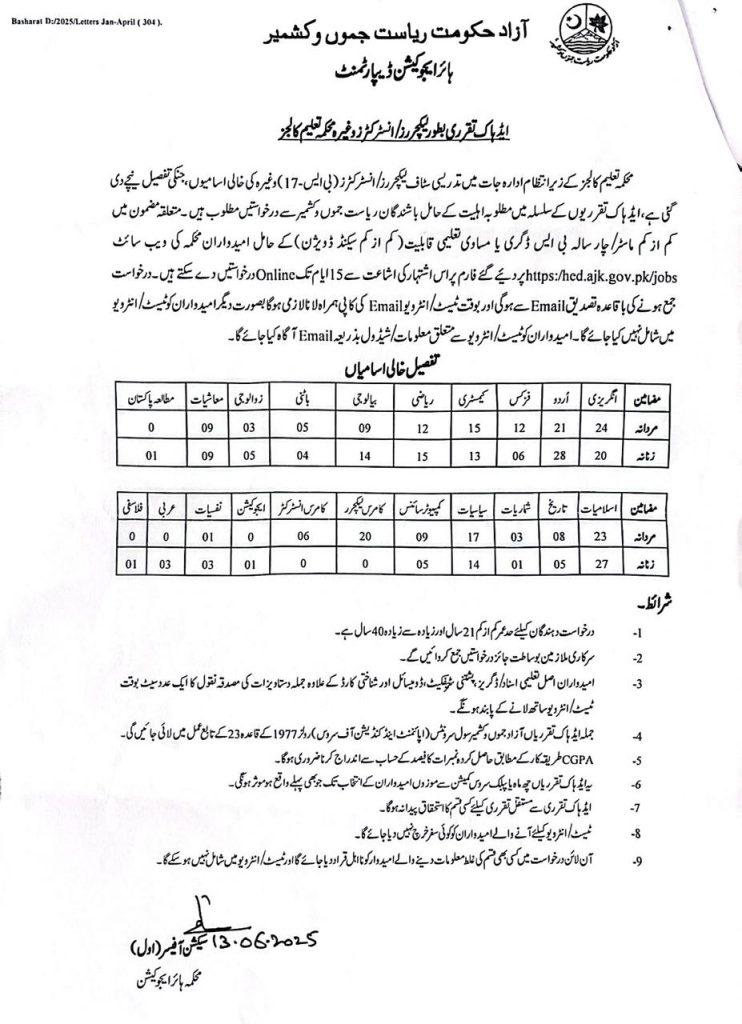 Basharat D:/2025/Letters Jan-April ( 304 ).
آزاد حکومت ریاست جموں و کشمیر
ہائر ایجوکیشن ڈیپارٹمنٹ
ایڈہاک تقرری بطور لیکچررز/انسٹرکٹرز وغیرہ محکمہ تعلیم کالجز
محکمہ تعلیم کالجز کے زیر انتظام ادارہ جات میں تدریسی سٹاف لیکچررز/انسٹرکٹرز (بی ایس-17) وغیرہ کی خالی اسامیوں، جنکی تفصیل نیچے دی
گئی ہے، ایڈہاک تقرریوں کے سلسلہ میں مطلوبہ اہلیت کے حامل باشندگان ریاست جموں و کشمیر سے درخواستیں مطلوب ہیں۔ متعلقہ مضمون میں
کم از کم ماسٹر/چار سالہ بی ایس ڈگری یا مساوی تعلیمی قابلیت (کم از کم سیکنڈ ڈویژن) کے حامل امیدواران محکمہ کی ویب سائٹ
https:/hed.ajk.gov.pk/jobs پر دیئے گئے فارم پر اس اشتہار کی اشاعت سے 15 ایام تک Online درخواستیں دے سکتے ہیں۔ درخواست
جمع ہونے کی باقاعدہ تصدیق Email سے ہوگی اور بوقت ٹیسٹ/انٹرویو Email کی کاپی ہمراہ لانا لازمی ہوگا بصورت دیگر امیدواران کو ٹیسٹ/انٹرویو
میں شامل نہیں کیا جائے گا۔ امیدواران کو ٹیسٹ/انٹرویو سے متعلق معلومات/شیڈول بذریعہ Email آگاہ کیا جائے گا۔
تفصیل خالی اسامیاں
مضامین انگریزی اُردو فزکس کیمسٹری ریاضی بیالوجی باٹنی زوالوجی معاشیات مطالعہ پاکستان
مردانہ 24 21 12 15 12 09 05 03 09 0
زنانہ 20 28 06 13 15 14 04 05 09 01
مضامین اسلامیات تاریخ شماریات سیاسیات کمپیوٹر سائنس کامرس لیکچرر کامرس انسٹرکٹر ایجوکیشن نفسیات عربی فلاسفی
مردانہ 23 08 03 17 09 20 06 0 01 0 0
زنانہ 27 05 01 14 05 0 0 01 03 03 01
شرائط۔
1- درخواست دہندگان کیلئے حد عمر کم از کم 21 سال اور زیادہ سے زیادہ 40 سال ہے۔
2- سرکاری ملازمین بوساطت جائز درخواستیں جمع کروائیں گے۔
3- امیدواران اصل تعلیمی اسناد/ڈگریز، پشتنی سرٹیفکیٹ، ڈومیسائل اور شناختی کارڈ کے علاوہ جملہ دستاویزات کی مصدقہ نقول کا ایک عدد سیٹ بوقت
ٹیسٹ/انٹرویو ساتھ لانے کے پابند ہونگے۔
4- جملہ ایڈہاک تقرریاں آزاد جموں و کشمیر سول سرونٹس (اپائنٹمنٹ اینڈ کنڈیشن آف سروس) رولز 1977 کے قاعدہ 23 کے تابع عمل میں لائی جائیں گی۔
5- CGPA طریقہ کار کے مطابق حاصل کردہ نمبرات کا فیصد کے حساب سے اندراج کرنا ضروری ہوگا۔
6- یہ ایڈہاک تقرریاں چھ ماہ یا پبلک سروس کمیشن سے موزوں امیدواران کے انتخاب تک جو بھی پہلے واقع ہو موثر ہونگی۔
7- ایڈہاک تقرری سے مستقل تقرری کیلئے کسی قسم کا استحقاق پیدا نہ ہوگا۔
8- ٹیسٹ/انٹرویو کیلئے آنے والے امیدواران کو کوئی سفر خرچ نہیں دیا جائے گا۔
9- آن لائن درخواست میں کسی بھی قسم کی غلط معلومات دینے والے امیدوار کو نااہل قرار دیا جائے گا اور ٹیسٹ/انٹرویو میں شامل نہیں ہو سکے گا۔
13.06.2025
سیکشن آفیسر (اول)
محکمہ ہائر ایجوکیشن